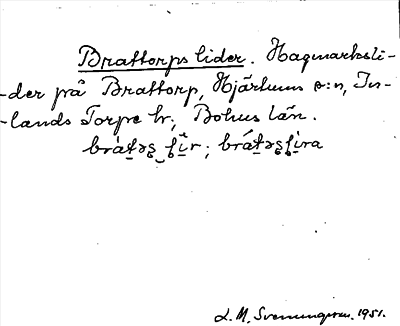 Brattorps lider. Hagmarksli-
-der på Brattorp, Hjärtums s:n, In-
-lands Torpe hr; Bohus län.
L. M. Svenungsson. 1951.